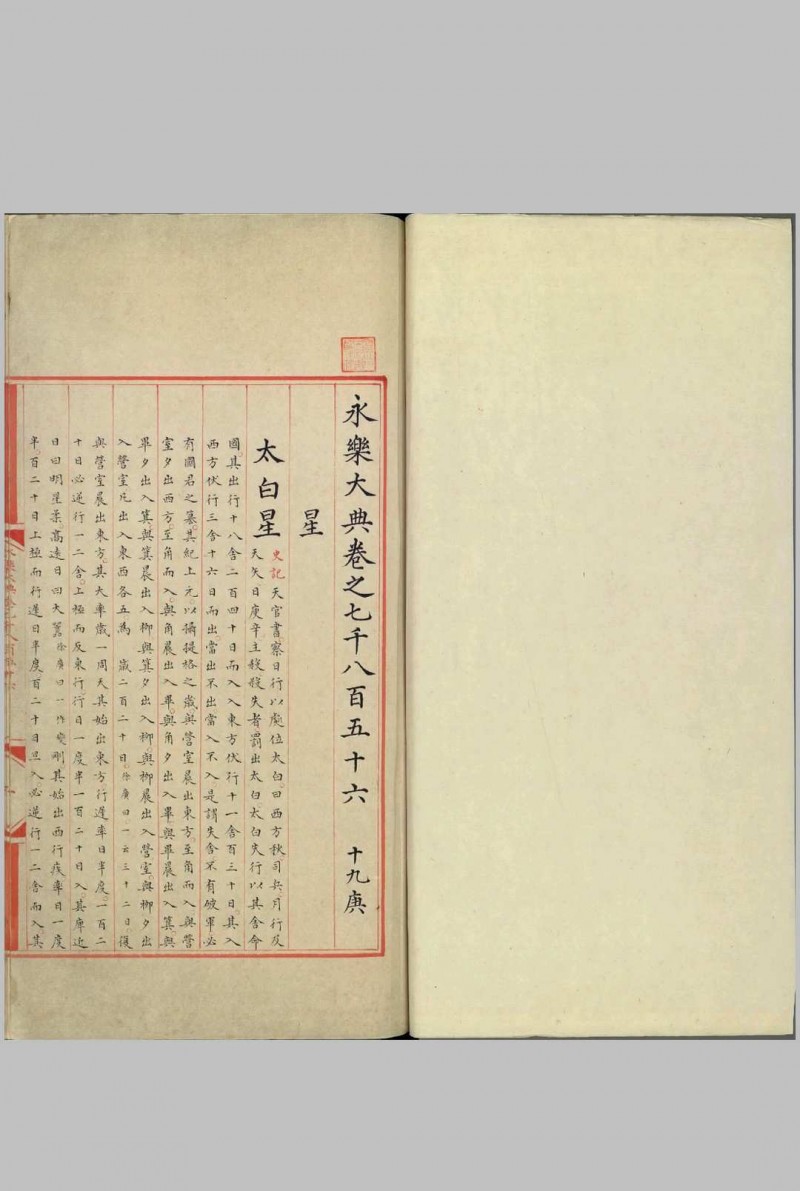 永樂大典卷之七千八百五十六 十九庚
星
太白星
史記天官書察日行以處位太白曰西方秋司兵月行反
天矢日庚辛主殺殺失者罰出太白太白失行以其舍命
國其出行十八舍二百四十日而入入東方伏行十一舍百三十日其入
西方伏行三舍十六日而出當出不出當入不入是謂失舍不有破軍必
有國君之篡其紀上元以攝提格之歲與營室晨出東方至角而入與營
室夕出西方至角而入與角晨出入畢與角夕出入畢與畢晨出入箕與
畢夕出入箕與箕晨出入柳與箕夕出入柳與柳晨出入營室與柳夕出
入營室凡出入東西各五為歲二百二十日徐廣曰一云三十二日復
與營室晨出東方其大率歲一周天其始出東方行遲率日半度一百二
十日必逆行一二舍上極而反東行行日一度半一百二十日入其庳近
日曰明星柔高遠日曰大囂徐廣曰一作變剛其始出西行疾率日一度
半百二十日上極而行遲日半度百二十日旦入必逆行一二舍而入其